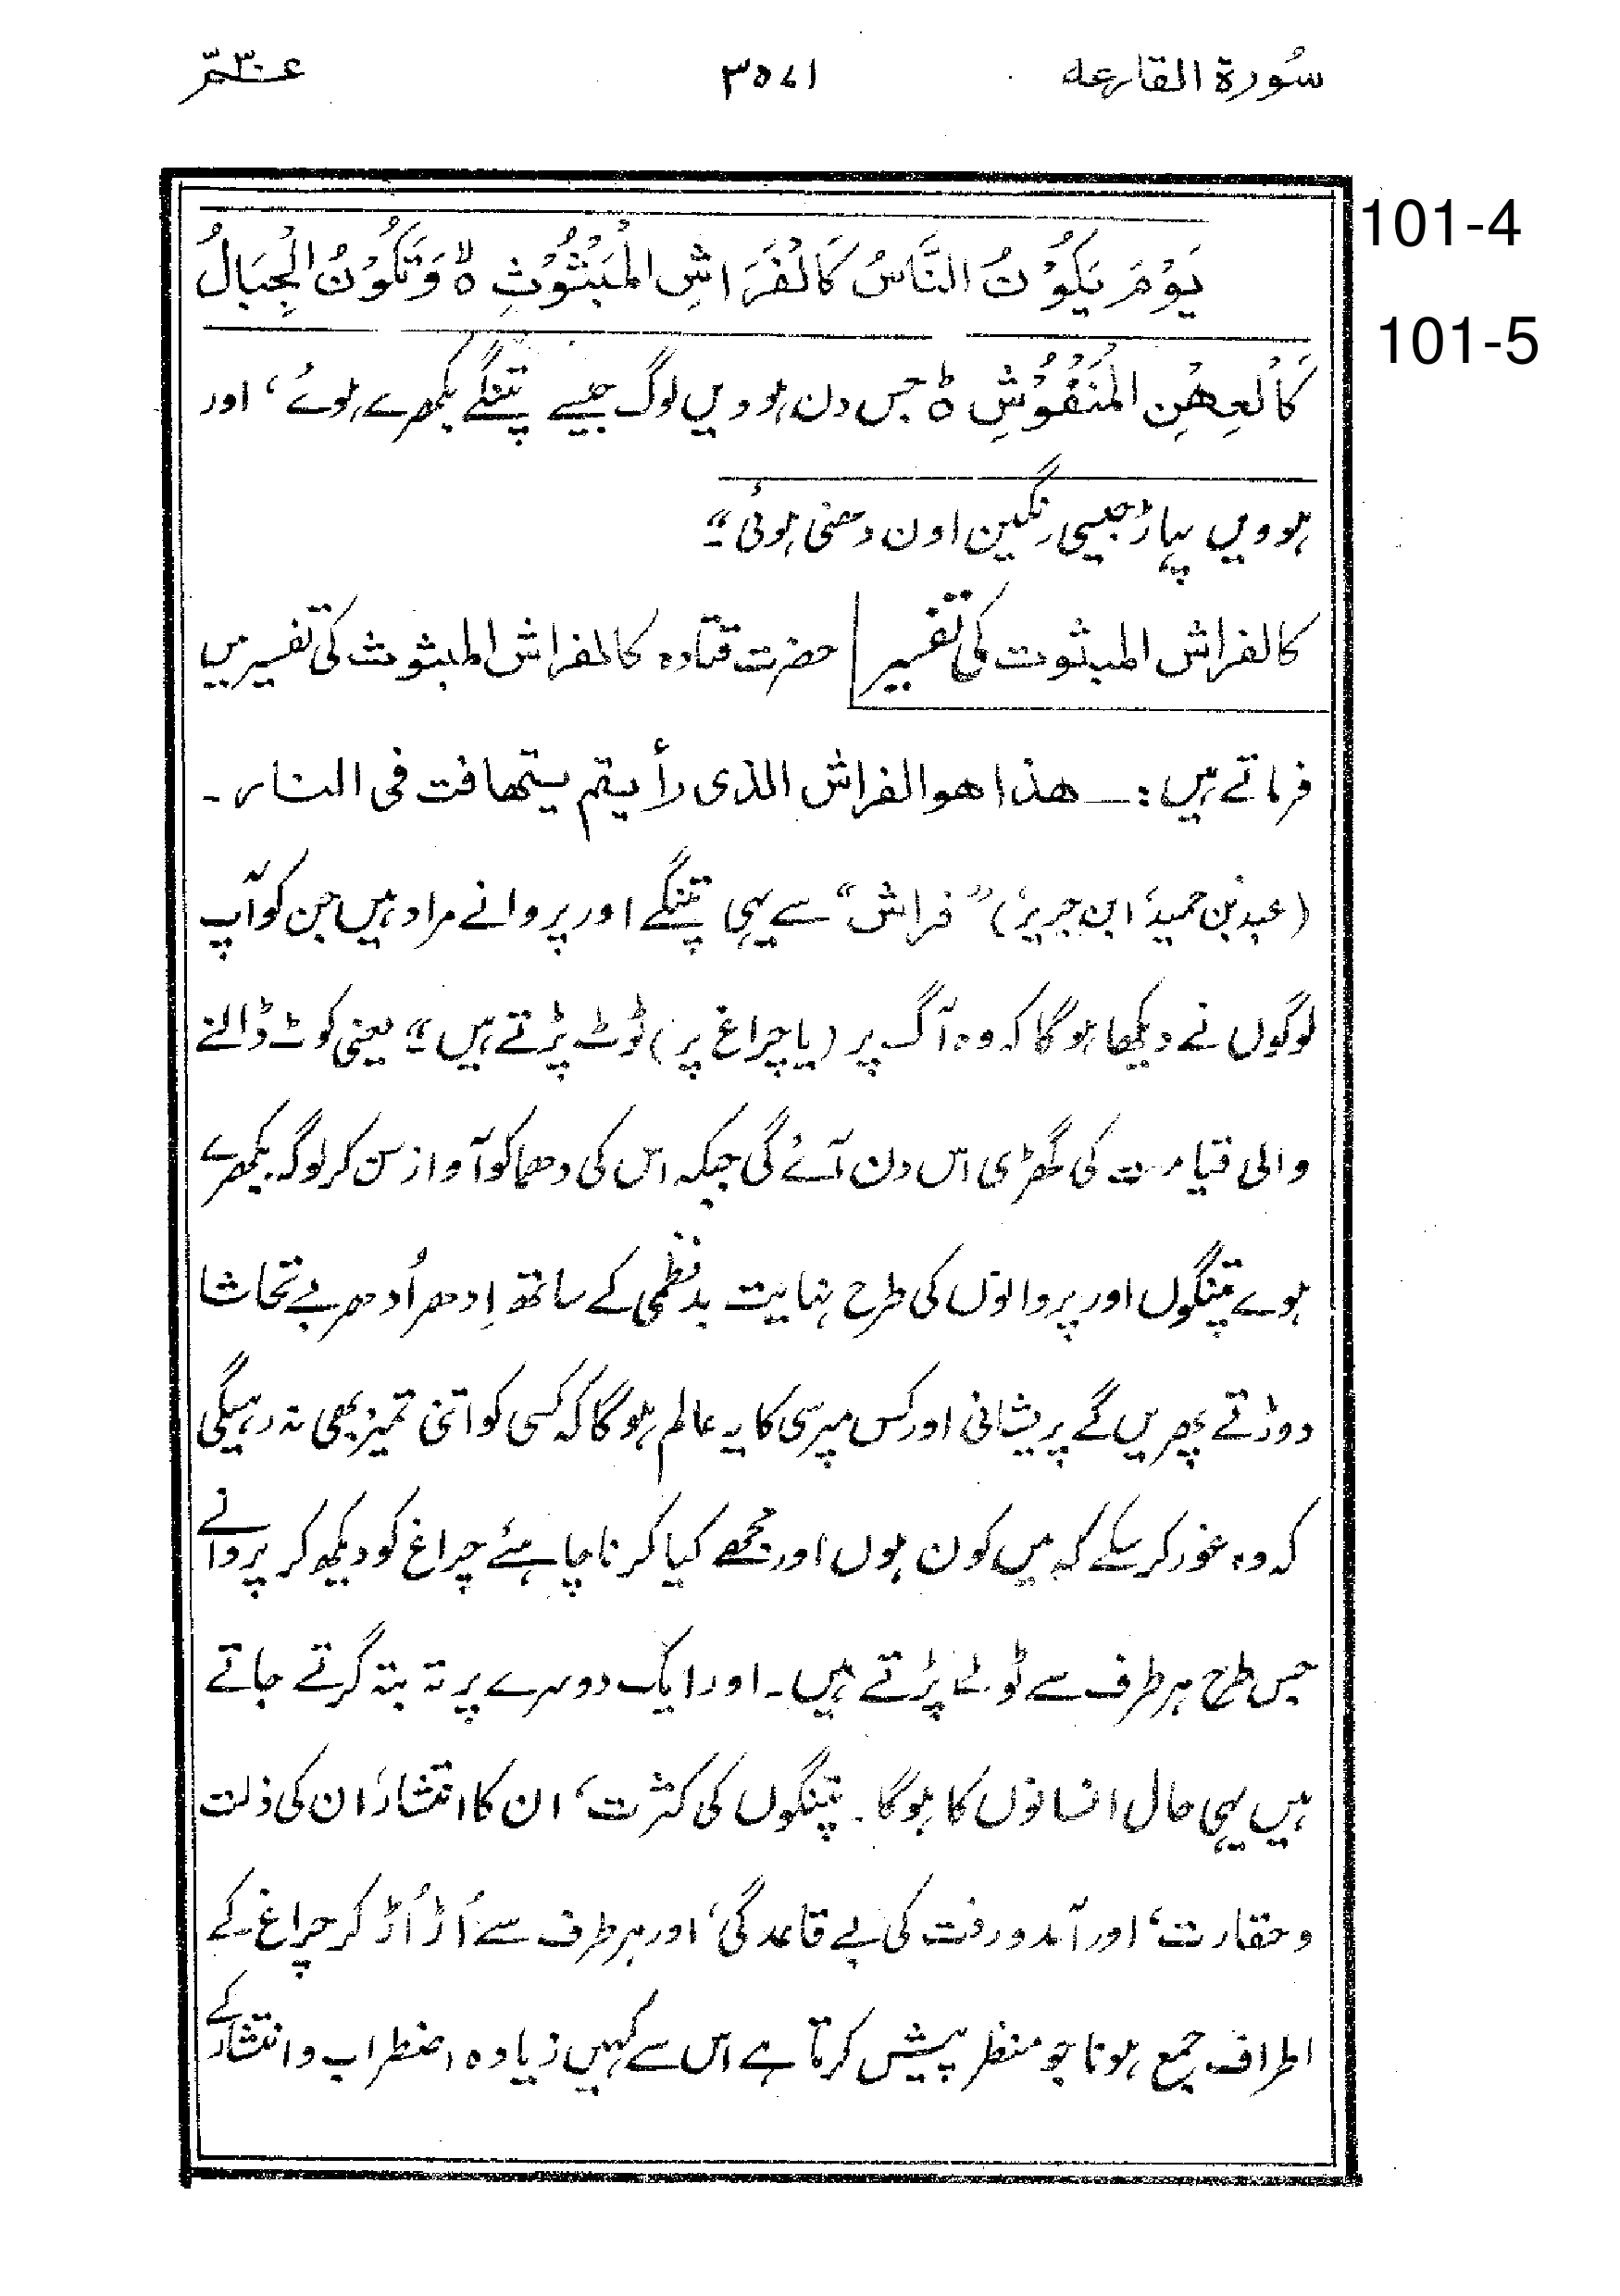 سُورة القارعه ۳۵۷۱ عـمّ ۳۰
101-4
يَوْمَ يَكُوْنُ النَّاسُ كَالْفَرَاشِ الْمَبْثُوْثِ ۙ۵ وَتَكُوْنُ الْجِبَالُ
101-5
كَالْعِهْنِ الْمَنْفُوْشِ ؕ۵ جس دن ہوویں لوگ جیسے پتنگے بکھرے ہوئے، اور
ہوویں پہاڑ جیسی رنگین اون دھنی ہوئی"۔
کالفراش المبثوث کی تفسیر حضرت قتادہ کالفراش المبثوث کی تفسیر میں
فرماتے ہیں :ــ هذا هو الفراش الذى رأيتم يتهافت فى النار ۔
(عبد بن حمیدؒ ابن جریرؒ) "فراش" سے یہی پتنگے اور پروانے مراد ہیں جن کو آپ
لوگوں نے دیکھا ہوگا کہ وہ آگ پر (یا چراغ پر) ٹوٹ پڑتے ہیں"۔ یعنی کوٹ ڈالنے
والی قیامت کی گھڑی اس دن آئے گی جبکہ اس کی دھماکو آواز سن کر لوگ بکھرے
ہوے پتنگوں اور پروانوں کی طرح نہایت بدنظمی کے ساتھ اِدھر اُدھر بے تحاشا
دوڑتے پھریں گے پریشانی اور کس مپرسی کا یہ عالم ہوگا کہ کسی کو اتنی تمیز بھی نہ رہیگی
کہ وہ غور کرسکے کہ میں کون ہوں اور مجھے کیا کرنا چاہئے چراغ کو دیکھ کر پروانے
جس طرح ہر طرف سے ٹوٹے پڑتے ہیں۔ اور ایک دوسرے پر تہ بتہ گرتے جاتے
ہیں یہی حال انسانوں کا ہوگا۔ پتنگوں کی کثرت، ان کا انتشار، ان کی ذلت
و حقارت، اور آمد و رفت کی بے قاعدگی، اور ہر طرف سے اُڑ اُڑ کر چراغ کے
اطراف جمع ہونا جو منظر پیش کرتا ہے اس سے کہیں زیادہ اضطراب و انتشار کے